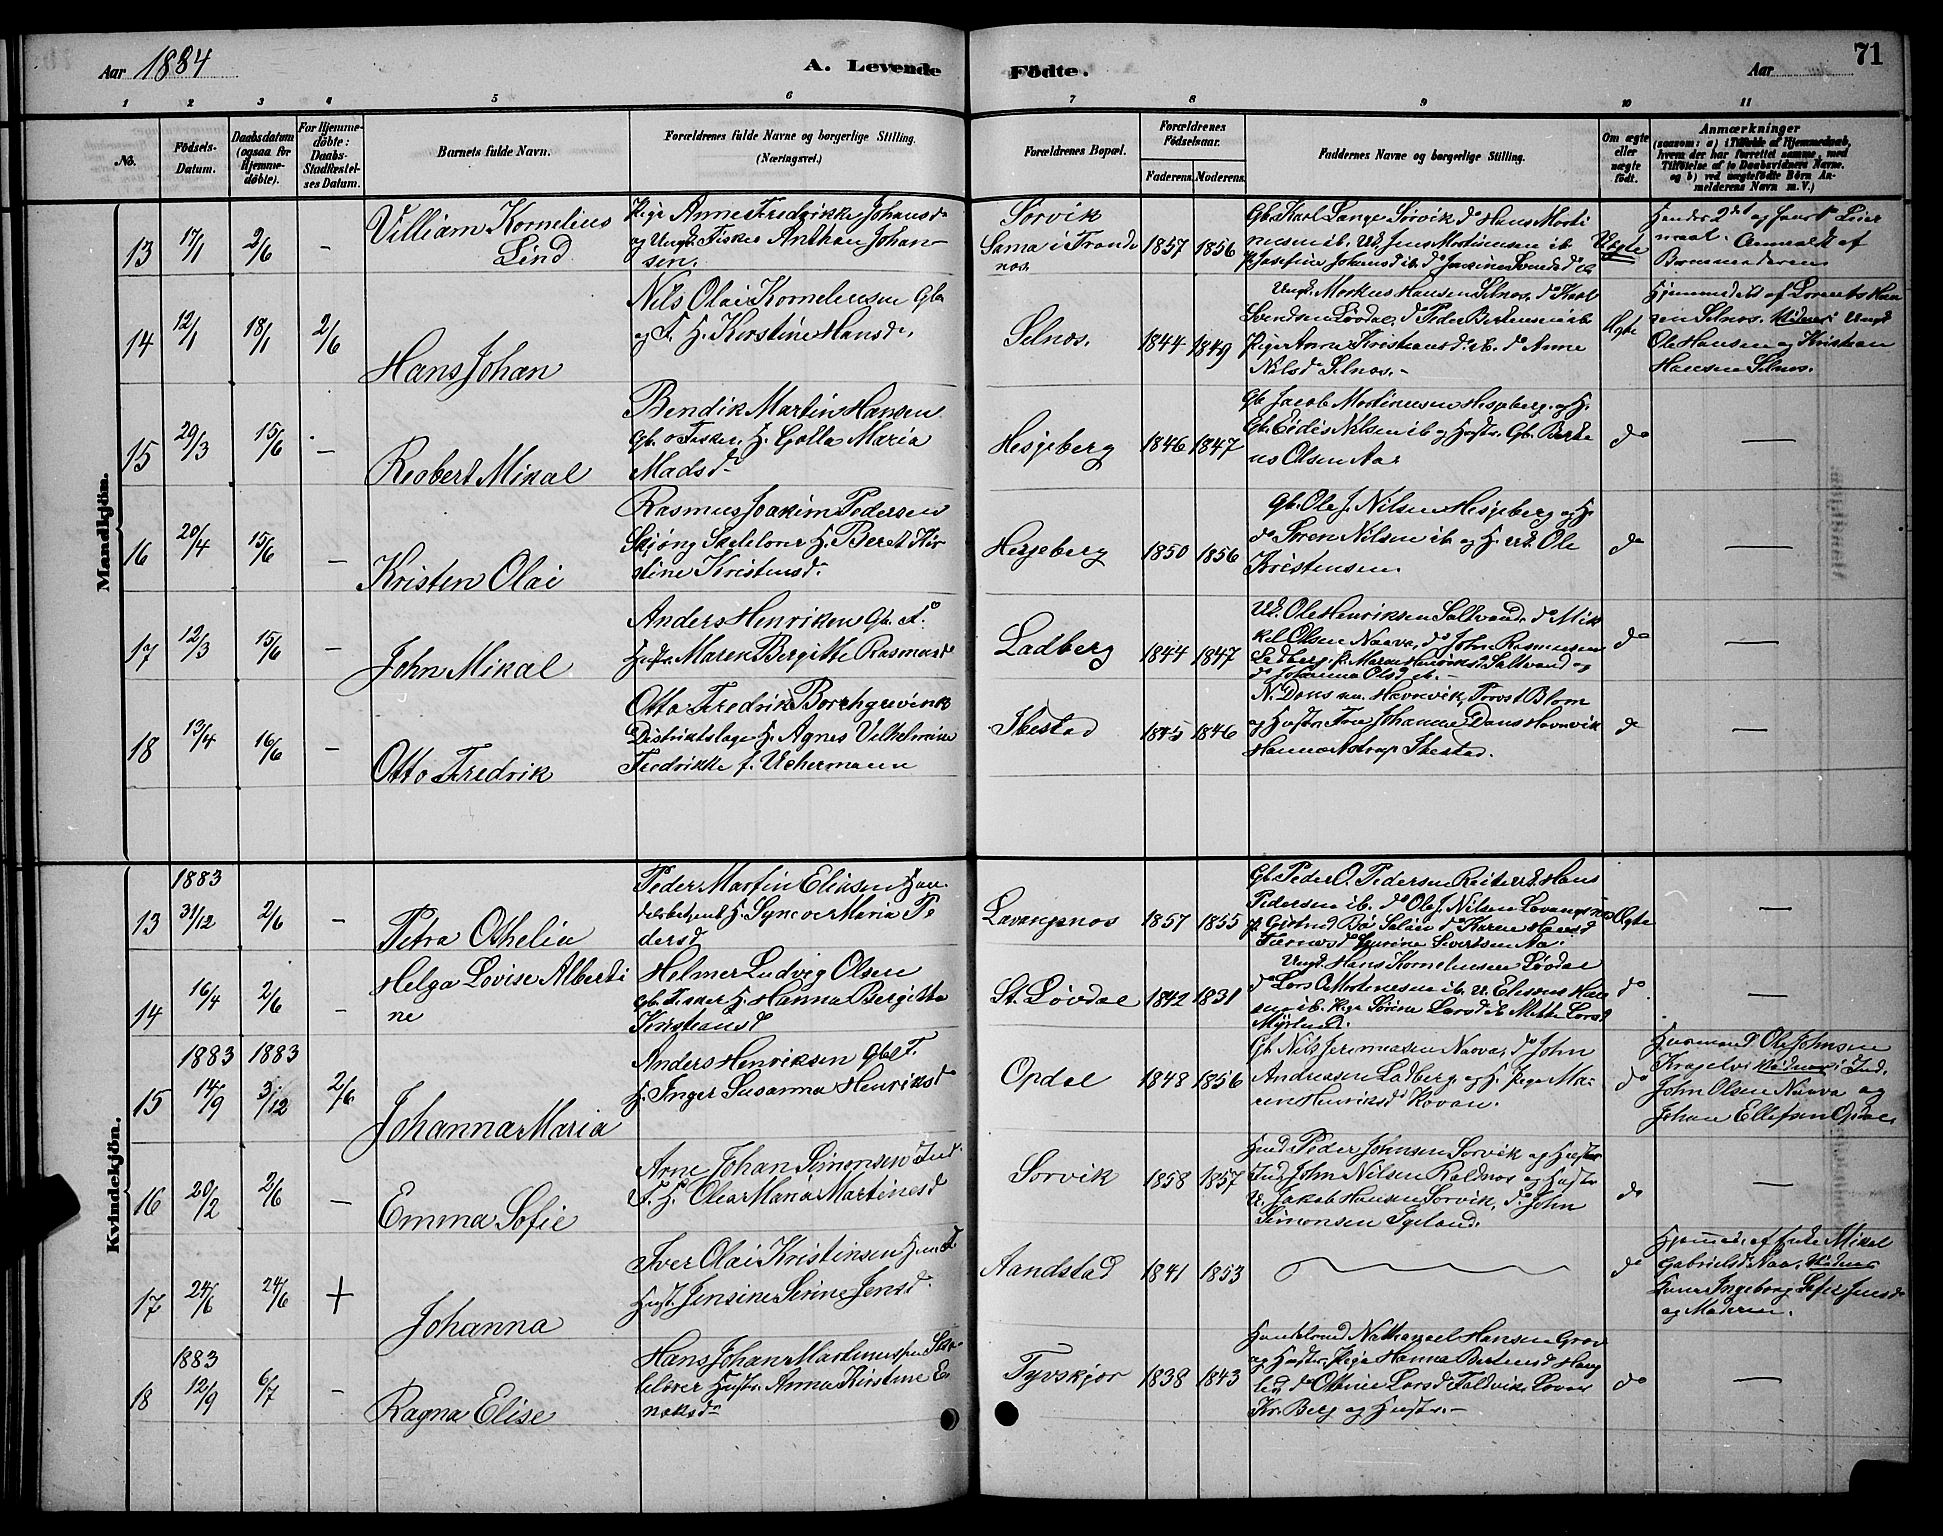 Aar 1884
A. Levende Födte.
Aar
71
1 2 3 4 5 6 7 8 9 10 11
No.
Födsels-
Datum.
Daabsdatum
(ogsaa for
Hjemme-
döbte).
For Hjemme-
döbte:
Daabs-
Stadfæstel-
ses Datum.
Barnets fulde Navn.
Forældrenes fulde Navne og borgerlige Stilling.
(Næringsvei.)
Forældrenes Bopæl.
Forældrenes
Födselsaar.
Faderens. Moderens.
Faddernes Navne og borgerlige Stilling.
Om ægte
eller
uægte
födt.
Anmærkninger
(saasom: a) i Tilfælde af Hjemmedaab,
hvem der har forrettet samme, med
Tilföielse af to Daabsvidners Navne.
og b) ved uægtefödte Börn An-
melderens Navn m. V.)
Mandkjön.
13 17/1 2/6 –
Villiam Kornelius
Lind
Pige Anne Fredrikke Johansd
og Ungk. Fisker Anthon Johan-
sen.
Sorvik
Sama i Trondenos.
1857 1856
Gb. Karl Lange Sorvik do Hans Morti
nusen ib. Uk. Jens Mortinusen ib
p. Josefine Johansd ib. do
Uægte
Hendes 2det og hans 1ste Leier
maal. Anmeldt af
Barnemoderen
14 12/1 18/1 2/6
Hans Johan
Nils Olai Kornelius­en Gb
og F. H. Kirstine Hansd.
Selnos.
1844 1849
Ungk. Markus Hansen Selnos, do Karl
Svendsen Løvdal, do Peder Berteusen ib
Pige Anne Kristiansd. ib. do Anne
Nilsd Selnos. –
Ægte
Hjemmedøbt af Lorents Han
sen Selnos. Vidner: Ungk
Ole Hansen og Kristian
Hansen Selnos.
15 29/3 15/6 –
Robert Mikal
Bendik Martin Hansen
Gb. o Fisker. H. Golla Maria
Madsd
Hesjeberg
1846 1847
Gb Jacob Mortinusen Hesjeberg og H.
Gb. Eidis Nilsen ib og Hustr. Gb. Berte
us Olsen Aar
do
—
16 20/4 15/6 –
Kristen Olai
Rasmus Joakim Pedersen
Skjong Skolelærer H. Beret Kir
stine Kristensd.
Hesjeberg
1850 1856
Gb. Ole J. Nilsen Hesjeberg og H.
do Søren Nilsen ib og H. Uk. Ole
Kristensen.
do
—
17 12/3 15/6 –
John Mikal
Anders Henriksen Gb. F.
Hustr Maren Bergitte Rasmusd
Ladberg
1844 1847
Uk. Ole Henriksen Saltvand, do Mik
kel Olsen Naava, do John Rasmussen
Ladberg, p. Maren Henriksd Saltvand og
do Johanna Olsd ib. –
do
—
18 13/4 16/6 –
Otto Fredrik
Otto Fredrik Borchgrevink
Distriktslæge H. Agnes Vilhelmine
Fredrikke f. Uchermann
Ibestad
1845 1846
N. Dons Havnvik, Provst Blom
og Hustr. Fru Johanne Dons Havnvik
Hanna Astrup Ibestad.
do
—
Kvindekjön.
13 1883 31/12 2/6 –
Petra Othelia
Peder Martin Eliasen Han
delsbetjent H. Synøve Maria Pe
dersd
Lavangsnos
1857 1855
Gb. Peder O. Pedersen Reite Uk. Hans
Pedersen ib. do Ole J. Nilsen Lavangsnos
p. Gjertrud Bø Salan do Karen Hansd
Sivertsen Aa.
Ægte
—
14 16/4 2/6 –
Helga Lovise Alberti
ne
Helmer Ludvig Olsen
Gb. Fisker H. Hanna Bergitta
Kristiansd
St. Løvdal
1842 1831
Ungk. Hans Kornelius­en Løvdal
do Lars A Mortinusen ib. U. Eliseus Han
sen ib. Pige Sørine Larsd ib Mette Larsd
Myrlund.
do
—
15 1883 14/9 1883 3/12 2/6
Johanna Maria
Anders Henriksen Gb. F.
H. Inger Susanna Henriksd
Opdal
1848 1856
Gb. Nils Jeremiasen Naava, do John
Andreasen Ladberg og H. Pige Ma-
ren Henriksd Rovan.
do
Husmand Ole Johnsen
Kragelvi Vidner: Ind.
John Olsen Naava og
Johan Ellefsen Opdal
16 20/2 2/6 –
Emma Sofie
Arne Johan Simonsen Ind.
F. H. Olea Maria Martinesd
Sorvik
1858 1857
Husd Peder Johnsen Sorvik og Hustr
Ind. John Nilsen Roldnos og Hustr
U. Jakob Hansen Sorvik, do John
Simonsen Igeland.
do
—
17 24/6 24/6 +
Johanna
Iver Olai Kristensen Husm F
Hust. Jensine Serine Jensd.
Aandstad
1841 1853
do
Hjemmed. af Enke Mikal
Gabrielsd Naa, Vidner
Ingeborg Sofie Jensd
og Moderen.
18 1883 12/9 6/7 –
Ragna Elise
Hans Johan Martinussen Sko
lelærer Hustr. Anna Kirstine E
noksd
Tyvskjær
1838 1843
Nathanael Hansen Grov
og Hustr. Pige Hanna Berteusd Haug
do Ottinie Larsd Foldvik,
Kr. Berg og Hustr. –
do
—